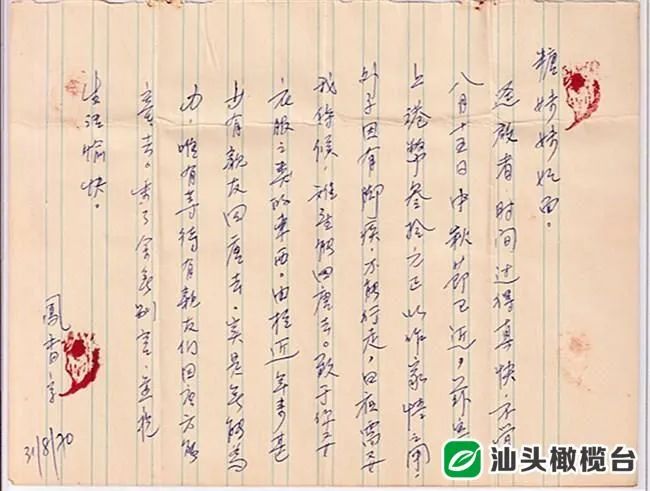 糖妗妗如面。
逕啟者，时间过得真快，不覚
八月十五日中秋節已近，茲寄
上港幣叁拾元正以作家情之用。
外子因有脚疾，不能行走，日夜需要
我侍候，难望能回唐去。致于你要
衣服之类的東西。由於近年来甚
少有親友回唐去，实是無能為
力，唯有等待有親友们回唐方能
寄去。專了余無别言，並祝
生活愉快。
鳳香字
31/8/70
汕头橄榄台